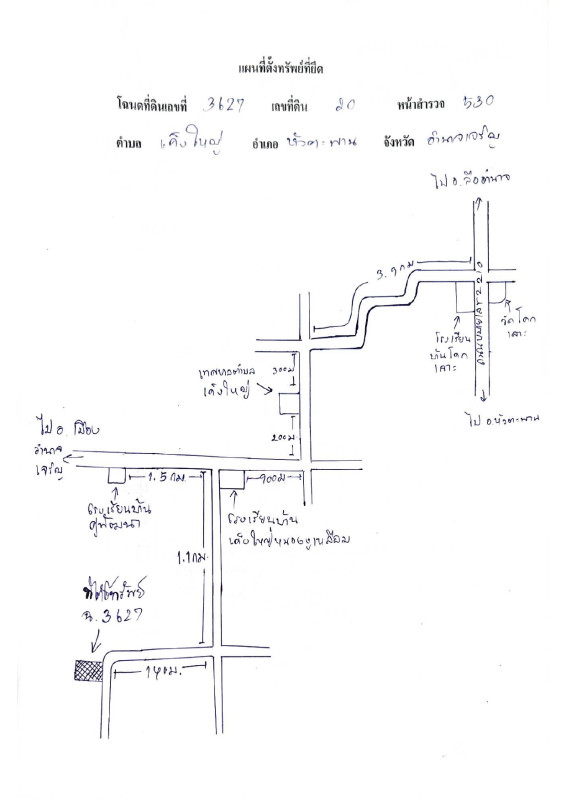 แผนที่ตั้งทรัพย์ที่ยึด
โฉนดที่ดินเลขที่ 3627 เลขที่ดิน 20 หน้าสำรวจ 530
ตำบล เค็งใหญ่ อำเภอ หัวตะพาน จังหวัด อำนาจเจริญ
ไป อ.ลืออำนาจ
3.9 กม
ถนนหมายเลข 2210
วัดโคก
เลาะ
โรงเรียน
บ้านโคก
เลาะ
ไป อ.หัวตะพาน
300 ม
เทศบาลตำบล
เค็งใหญ่
200 ม
ไป อ. เมือง
อำนาจ
เจริญ
1.5 กม
900 ม
โรงเรียนบ้าน
คูพัฒนา
โรงเรียนบ้าน
เค็งใหญ่หนองงูเหลือม
1.1 กม.
ที่ตั้งทรัพย์
ฉ. 3627
140 ม.